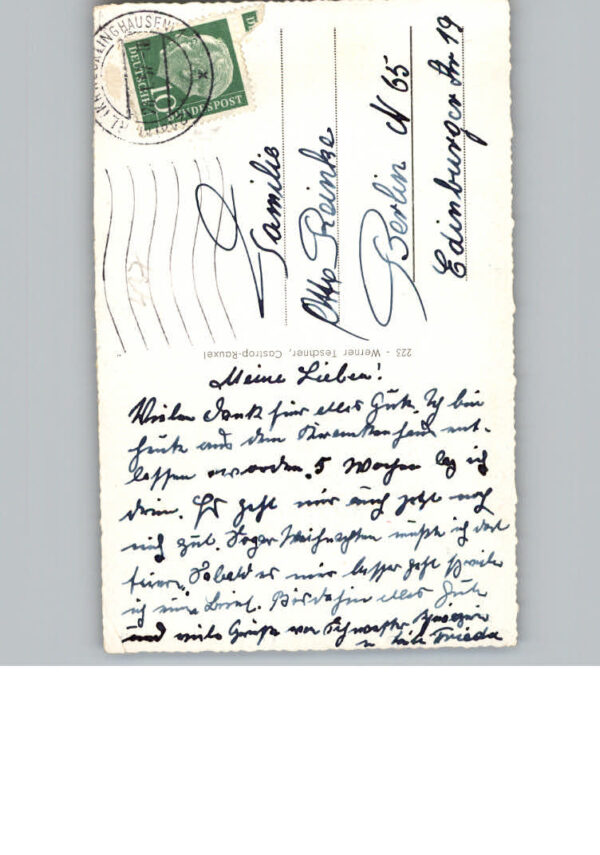 RECKLINGHAUSEN
DEUTSCHE
BUNDESPOST
10
Familie
Otto Reinke
Berlin N 65
Edinburger Str 19
223 - Werner Teschner, Castrop-Rauxel
Meine Lieben!
Vielen Dank für alles Gute. Ich bin
heute aus dem Krankenhaus ent-
lassen worden. 5 Wochen lag ich
drin. Es geht mir auch jetzt noch
nich gut. Sogar Weihnachten mußte ich dort
feiern. Sobald es mir besser geht schreibe
ich einen Brief. Bis dahin alles Gute
und viele Grüße von Schwester Schwägerin
u Frieda